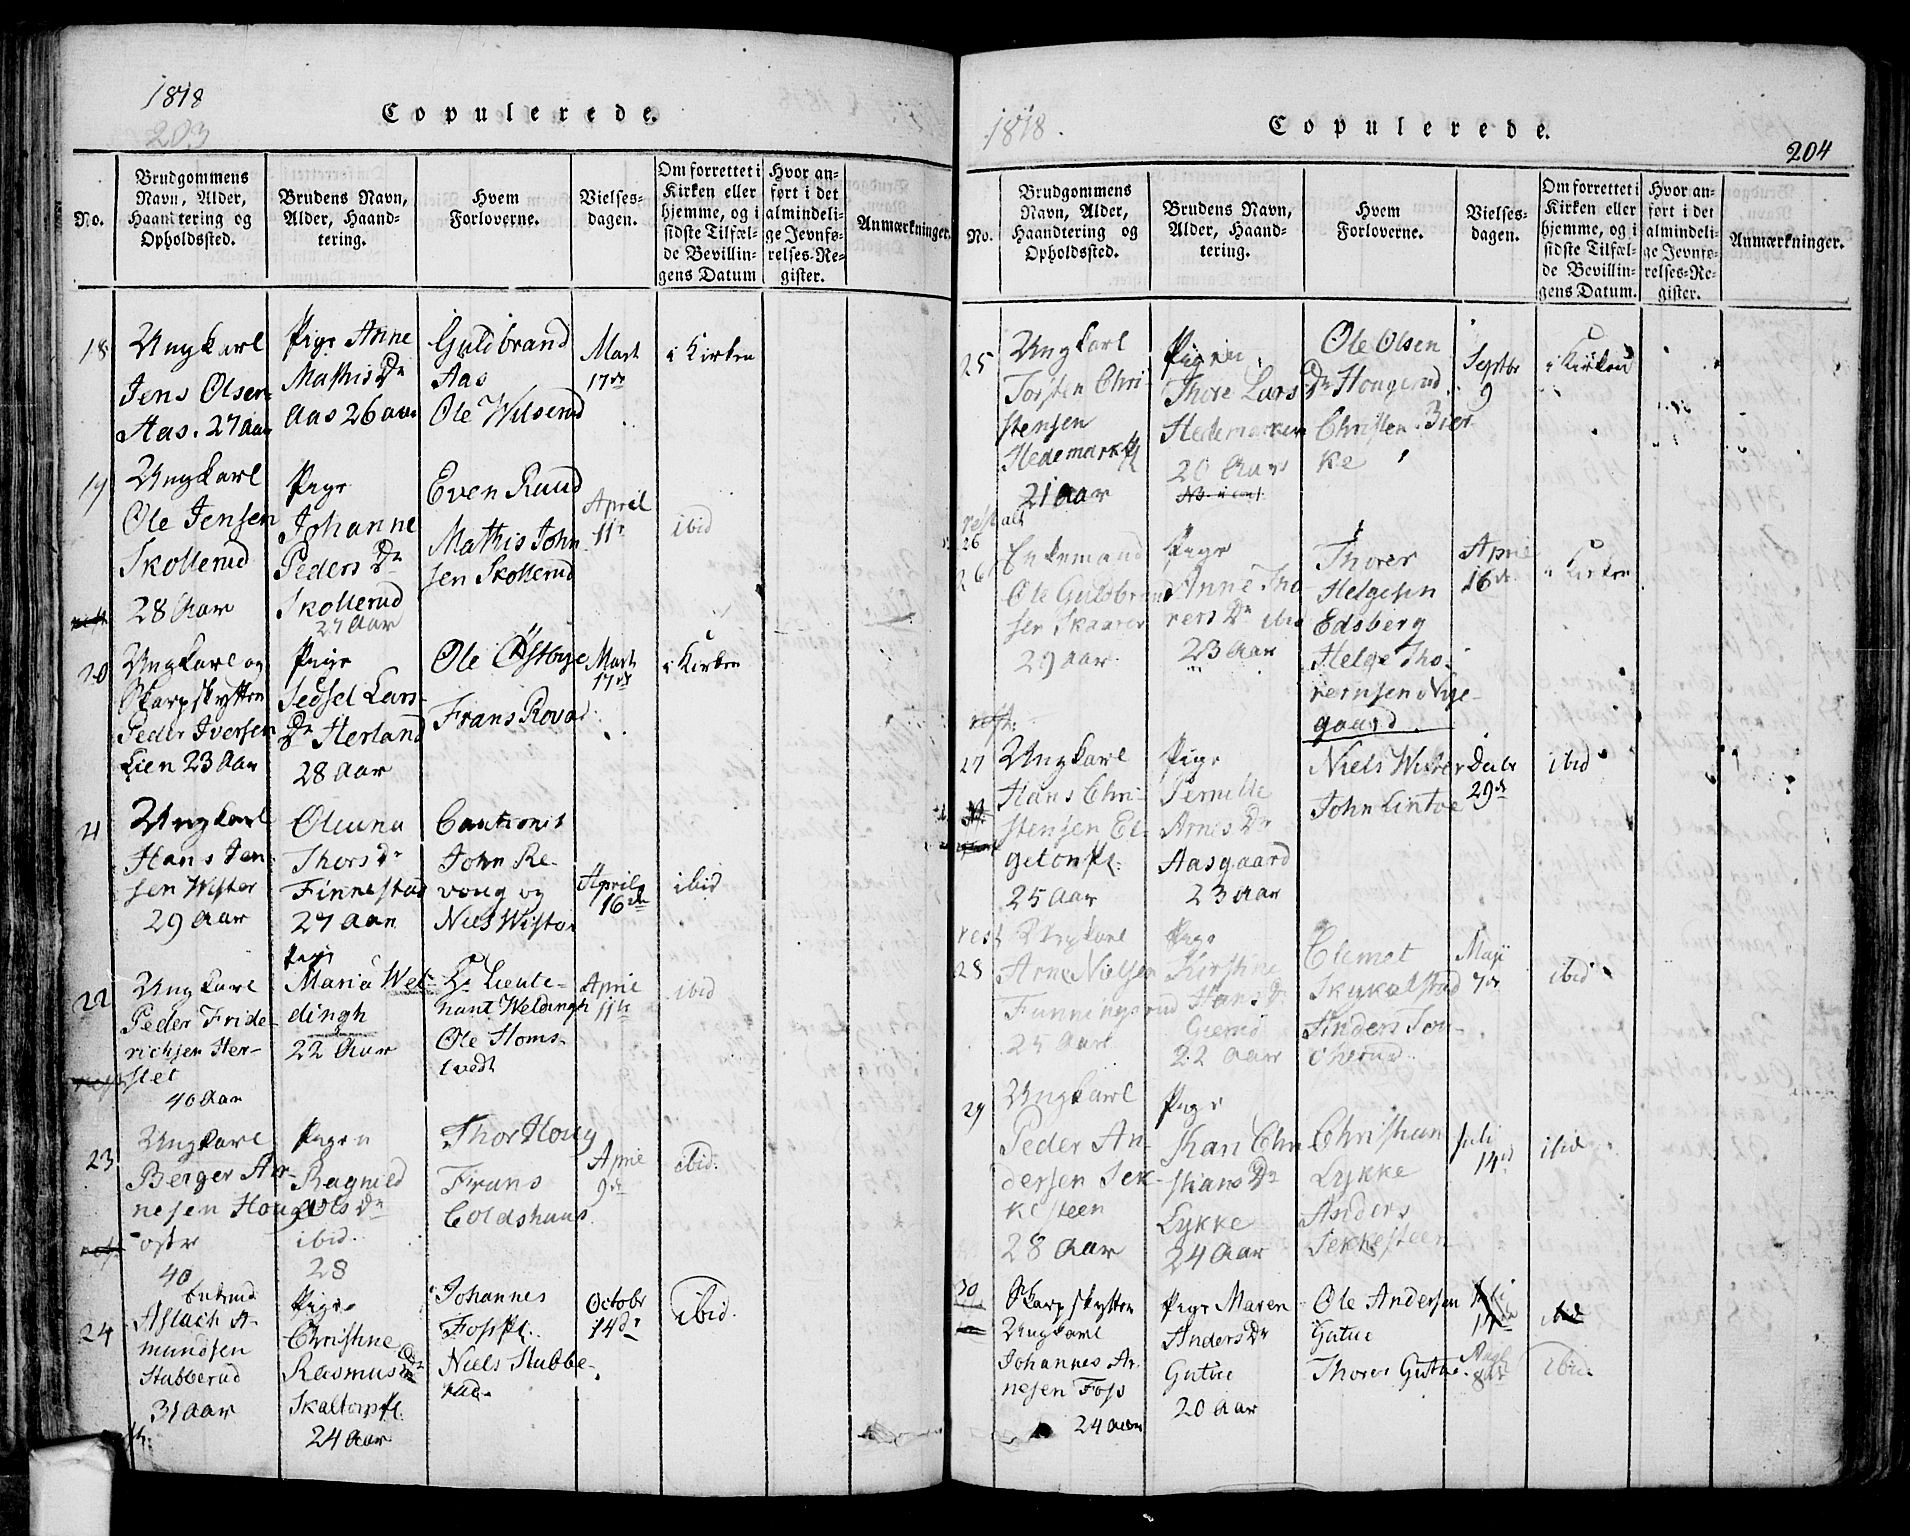 1818
203
Copulerede.
No.
Brudgommens
Navn, Alder,
Haandtering og
Opholdssted.
Brudens Navn,
Alder, Haand-
tering.
Hvem
Forloverne.
Vielses-
dagen.
Om forrettet i
Kirken eller
hjemme, og i
sidste Tilfæl-
de Bevillin-
gens Datum
Hvor an-
ført i det
almindeli-
ge Jevnfø-
relses-Re-
gister.
Anmærkninger.
18
Ungkarl
Jens Olsen
Aas. 27 Aar
Pige Anne
Mathis Dr
Aas 26 aar
Guldbrand
Aas
Ole Wilserud
Mart
17de
i Kirken
19
Ungkarl
Ole Jensen
Skollerud
28 Aar
Pige
Johanne
Peders Dr
Skollerud
27 Aar
Even Ruud
Mathis John
sen Skollerud
April
11te
ibid
20
Ungkarl og
Skarpskytter
Peder Iversen
Lien 23 Aar
Pige
Sedsel Lars
Dr Herland
28 Aar
Ole Østbye
Frans Rovad
Mart
17de
i Kirken
21
Ungkarl
Hans Jen-
sen Wister
29 Aar
Oleuna
Thors Dr
Finnestad
27 Aar
Cautionis
John Re-
voug og
Niels Wister
April
16de
ibid
22
Ungkarl
Peder Fride-
richsen Her-
slet
40 Aar
Pige
Maria Wel-
dingh
22 Aar
Lieute-
nant Weldingh
Ole Homs-
tvedt
April
11te
ibid
23
Ungkarl
Berger Ar-
nesen Houg
østr
40
Pigen
Ragnild
Ols Dr
ibid.
28
Thor Houg
Frans
Coldshuus
April
9de
ibid.
24
Aslach A-
mundsen
Stubberud
31 aar
Pige
Christine
Rasmus Dr
Skaltorppl.
24 Aar
Johannes
Fosspl.
Niels Stubbe-
rud.
Octobr
14de
ibid.
1818.
Copulerede.
204
No.
Brudgommens
Navn, Alder,
Haandtering og
Opholdssted.
Brudens Navn,
Alder, Haand-
tering.
Hvem
Forloverne.
Vielses-
dagen.
Om forrettet i
Kirken eller
hjemme, og i
sidste Tilfæl-
de Bevillin-
gens Datum.
Hvor an-
ført i det
almindeli-
ge Jevnfø-
relses-Re-
gister.
Anmærkninger.
25
Ungkarl
Torsten Chri-
stensen
Hedemark
21 Aar
Pigen
Thore Lars Dr
Hedemarken
20 Aars
Ole Olsen
Hougerud
Christen Bier
ke
Septbr
9
i Kirken
26
Enkemand
Ole Guldbrand
sen Skaarer
29 Aar
Pige
Anne Tho
rers Dr ibid
23 Aar
Thorer
Helgesen
Edsberg
Helge Tho-
rernsen Nye-
gaard.
April
16de
i Kirken
27
Ungkarl
Hans Chri-
stensen El-
getonpl.
25 Aar
Pige
Pernille
Arnes Dr
Aasgaard
23 Aar
Niels Wister
John Lintoe
Decbr
29de
ibid
rest
28
Ungkarl
Arne Nielsen
Funningsrud
Pige
Kirstine
Hans Dr
22 Aar
Clemet
Skykelstad
Anders Tou-
Maji
7de
ibid
29
Ungkarl
Peder An-
dersen Sek-
kesteen
28 Aar
Pige
Kari Chri
stians Dr
Lykke
24 Aar
Christian
Lykke
Anders
Sekkesteen
Juli
14de
ibid
30
Skarpskytter
Ungkarl
Johannes Ar-
nesen Foss
24 Aar
Pige Maren
Anders Dr
Gutue
20 Aar
Ole Andersen
Gutue
Thorer Guttue
Juli
ibid
ibid.